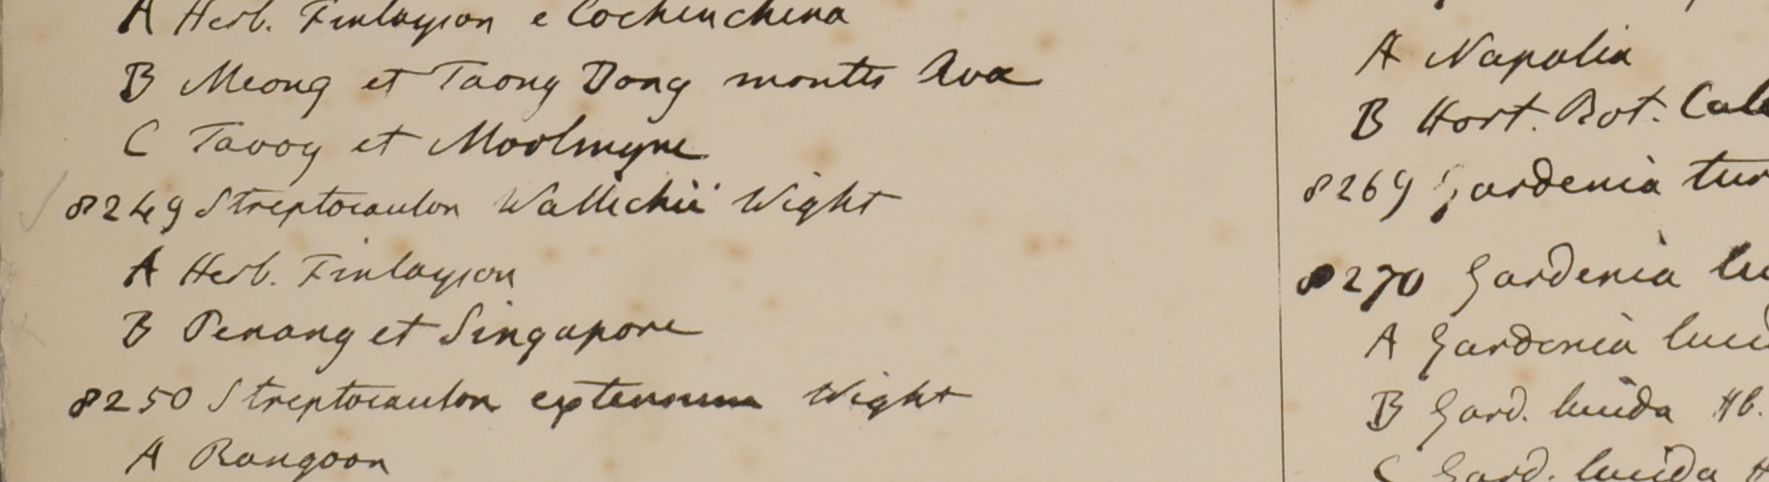 A Herb. Finlayson e Cochinchina
B Meong et Taong Dong montis Ava
C Tavoy et Moolmyne
8249 Streptocaulon Wallichii Wight
A Herb. Finlayson
B Penang et Singapore
8250 Streptocaulon extensum Wight
A Rangoon
A Napalia
B Hort. Bot. Cal
8269 Gardenia tur
8270 Gardenia lu
A Gardenia luci
B Gard. lucida Hb.
C Gard. lucida H